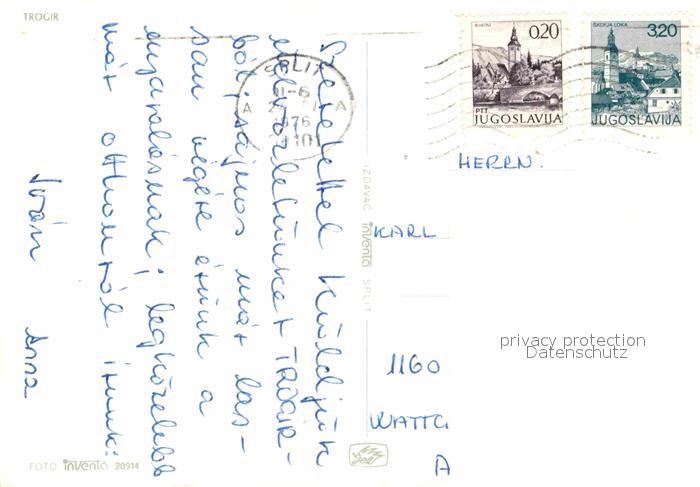 TROGIR
Szeretettel küldjük
üdvözletünket TROGIR-
ból, sajnos már las-
san végére érünk a
nyaralásnak; legközelebb
már otthonról írunk:
Iván Anna
FOTO inventa 20914
IZDAVAČ inventa SPLIT
SPLIT
A A
1976
BOHINJ
0,20
PTT
JUGOSLAVIJA
ŠKOFJA LOKA
3,20
JUGOSLAVIJA
HERRN.
KARL
1160
WATTG
A
privacy protection
Datenschutz